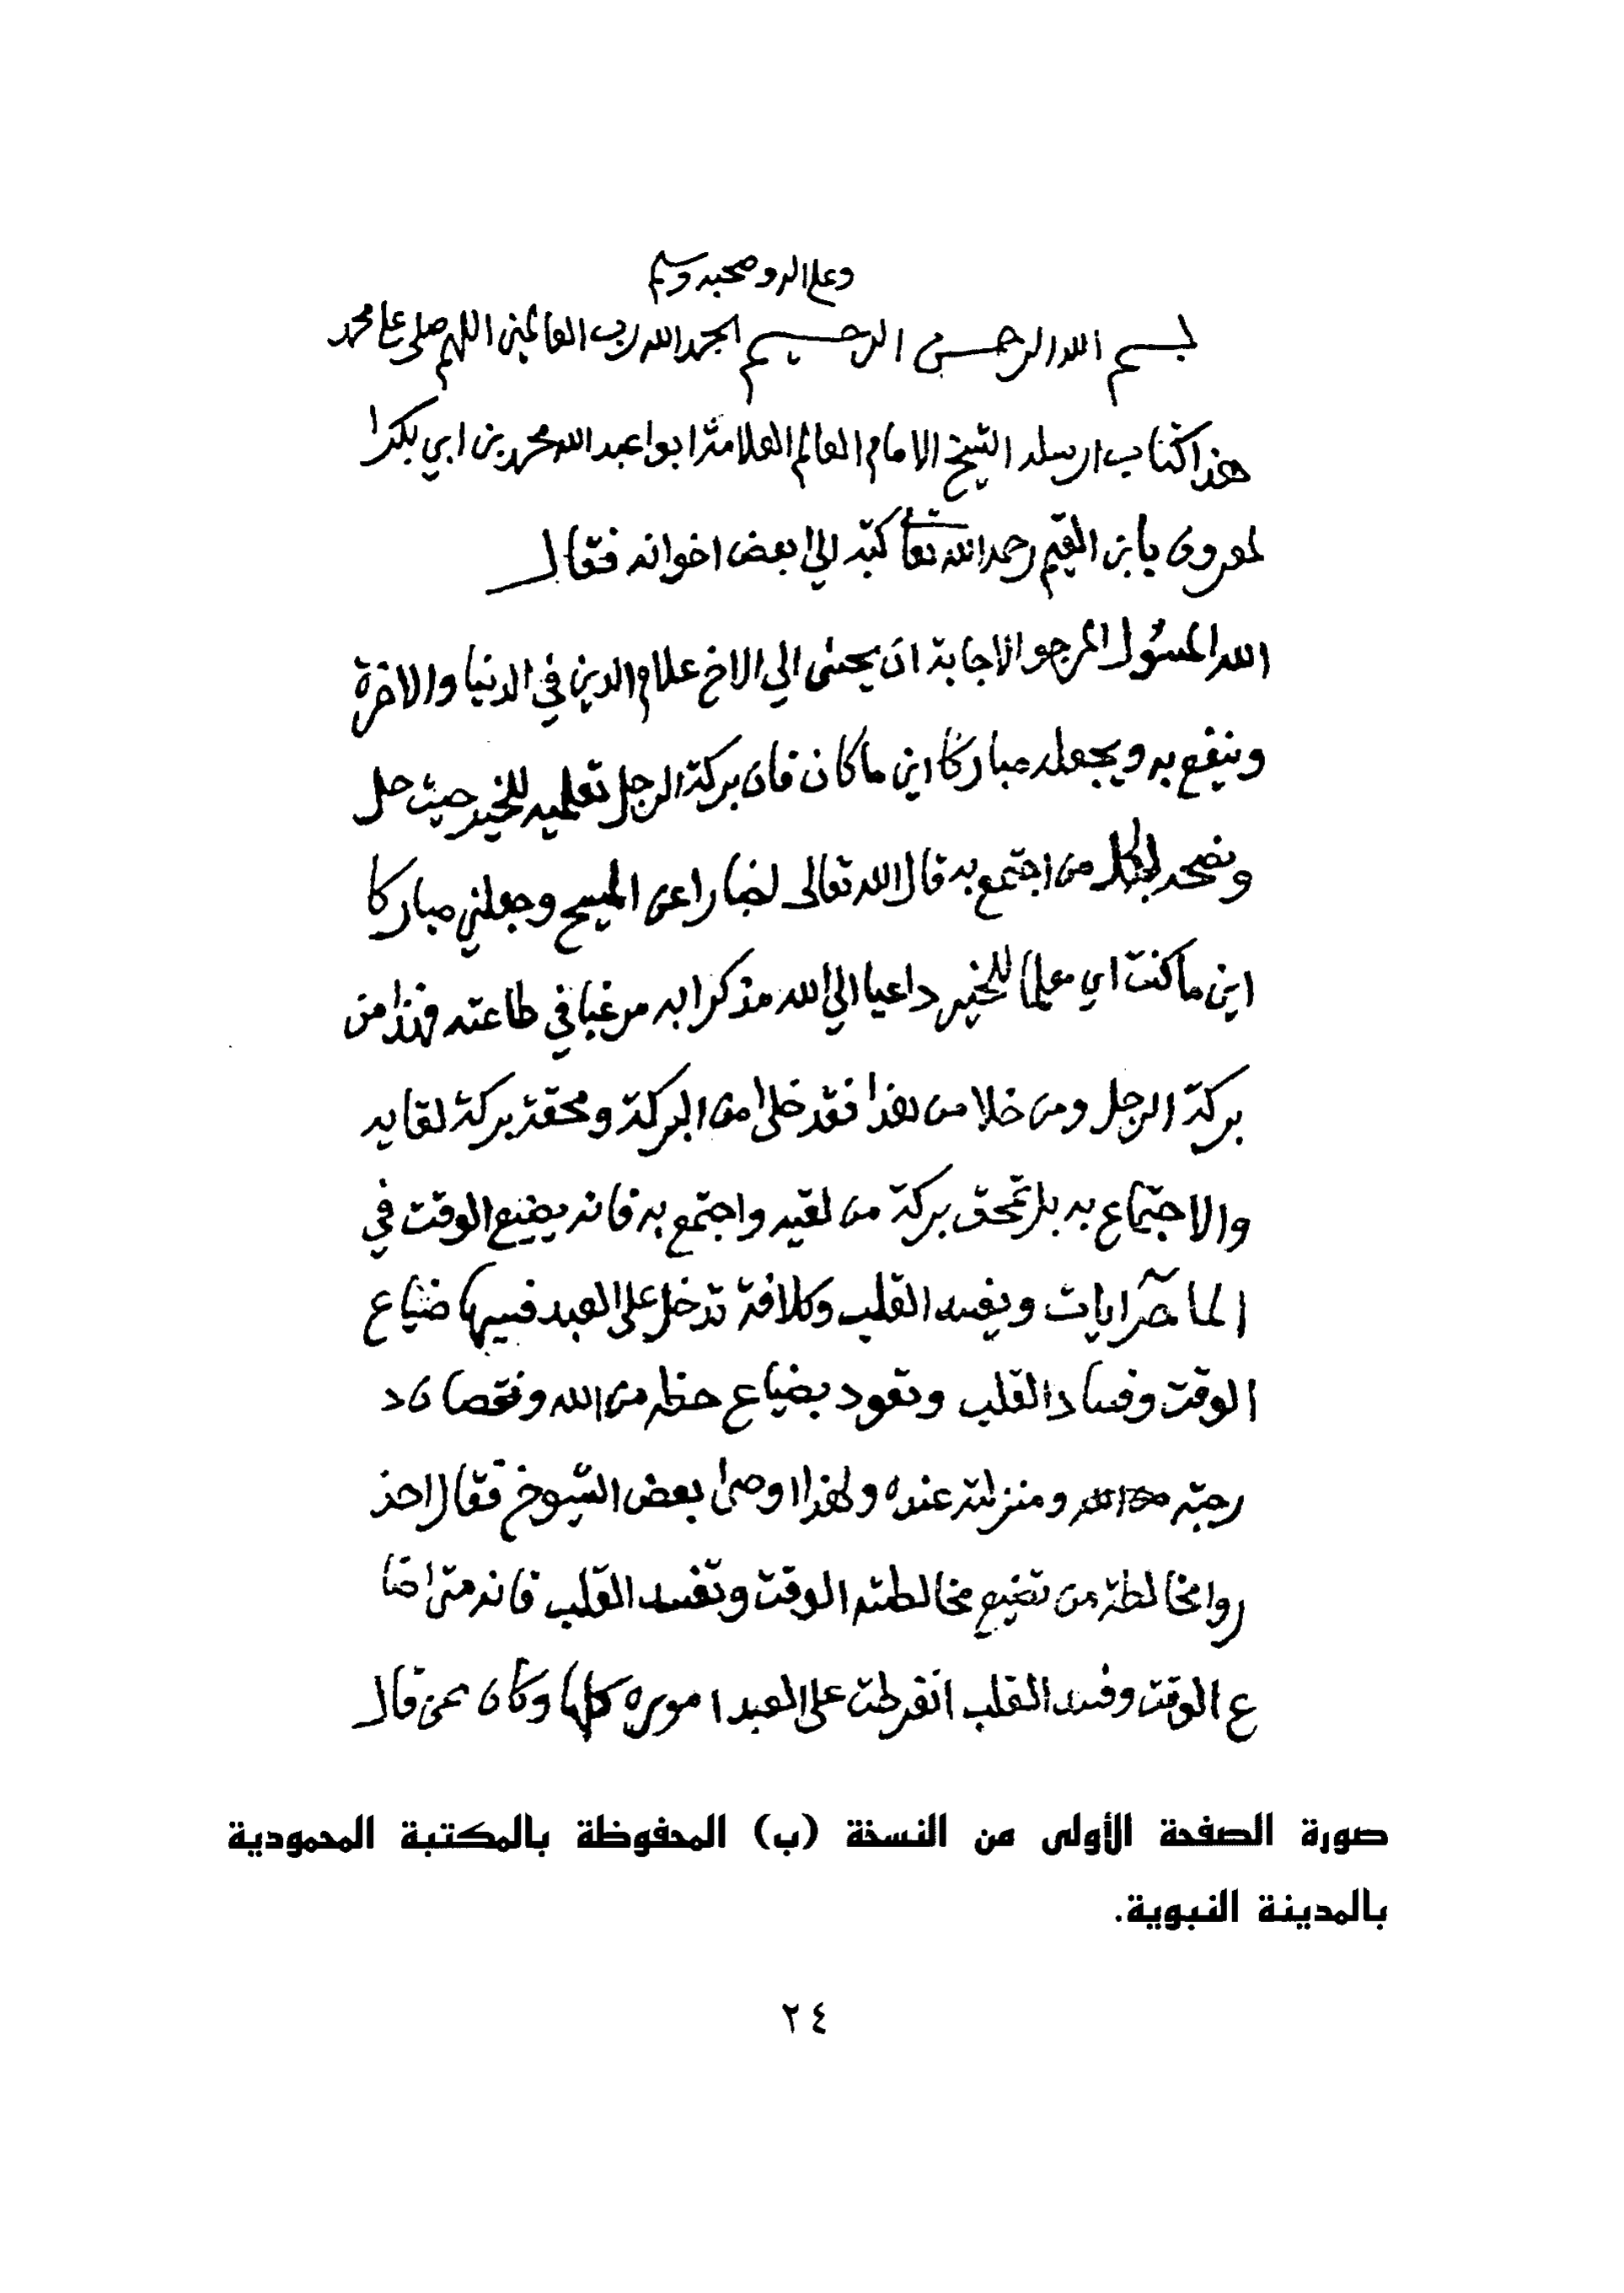 وعلى اله وصحبه وسلم
بسم الله الرحمن الرحيم الحمد لله رب العالمين اللهم صلي على محمد
هذا كتاب ارسله الشيخ الامام العالم العلامة ابوا عبد الله محمد بن ابي بكر ا
لمعروف بابن القيم رحمه الله تعا كتبه الى بعض اخوانه فقال
الله المسئول المرجو الاجابة ان يحسن الي الاخ علام الدين في الدنيا والاخرة
وينفع به ويجعله مباركا اين ما كان فان بركة الرجل تعليمه للخير حيث حل
ونصحه لكل من اجتمع به قال الله تعالى اخبارا عن المسيح وجعلني مباركا
اين ما كنت اي معلما للخير داعيا الى الله مذكرا به مرغبا في طاعته فهذا من
بركة الرجل ومن خلا من هذا فقد خلى من البركة ومحقة بركة لقايه
والاجتماع به بل تمحق بركة من لقيه واجتمع به فانه يضيع الوقت في
الما جرايات ويفسد القلب وكل افة تدخل على العبد فسببها ضياع
الوقت وفساد القلب وتعود بضياع حظه من الله ونقصان د
رجته ومنزلته عنده ولهذا اوصى بعض الشيوخ فقال احذ
روا مخالطة من تضيع مخالطته الوقت وتفسد القلب فانه متى اضا
ع الوقت وفسد القلب انفرطت على العبد اموره كلها وكان ممن قال
صورة الصفحة الأولى من النسخة (ب) المحفوظة بالمكتبة المحمودية
بالمدينة النبوية.
٢٤